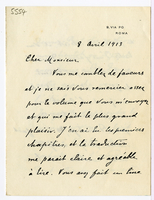 5554
8 Avril 1913
Cher Monsieur,
Vous me comblez de faveurs
et je ne sais vous remercier assez
pour le volume que vous m'envoyez
et qui me fait le plus grand
plaisir. J'en ai lu les premiers
chapitres, et la traduction
me parait claire et agréable
à lire. Vous avez fait un livre